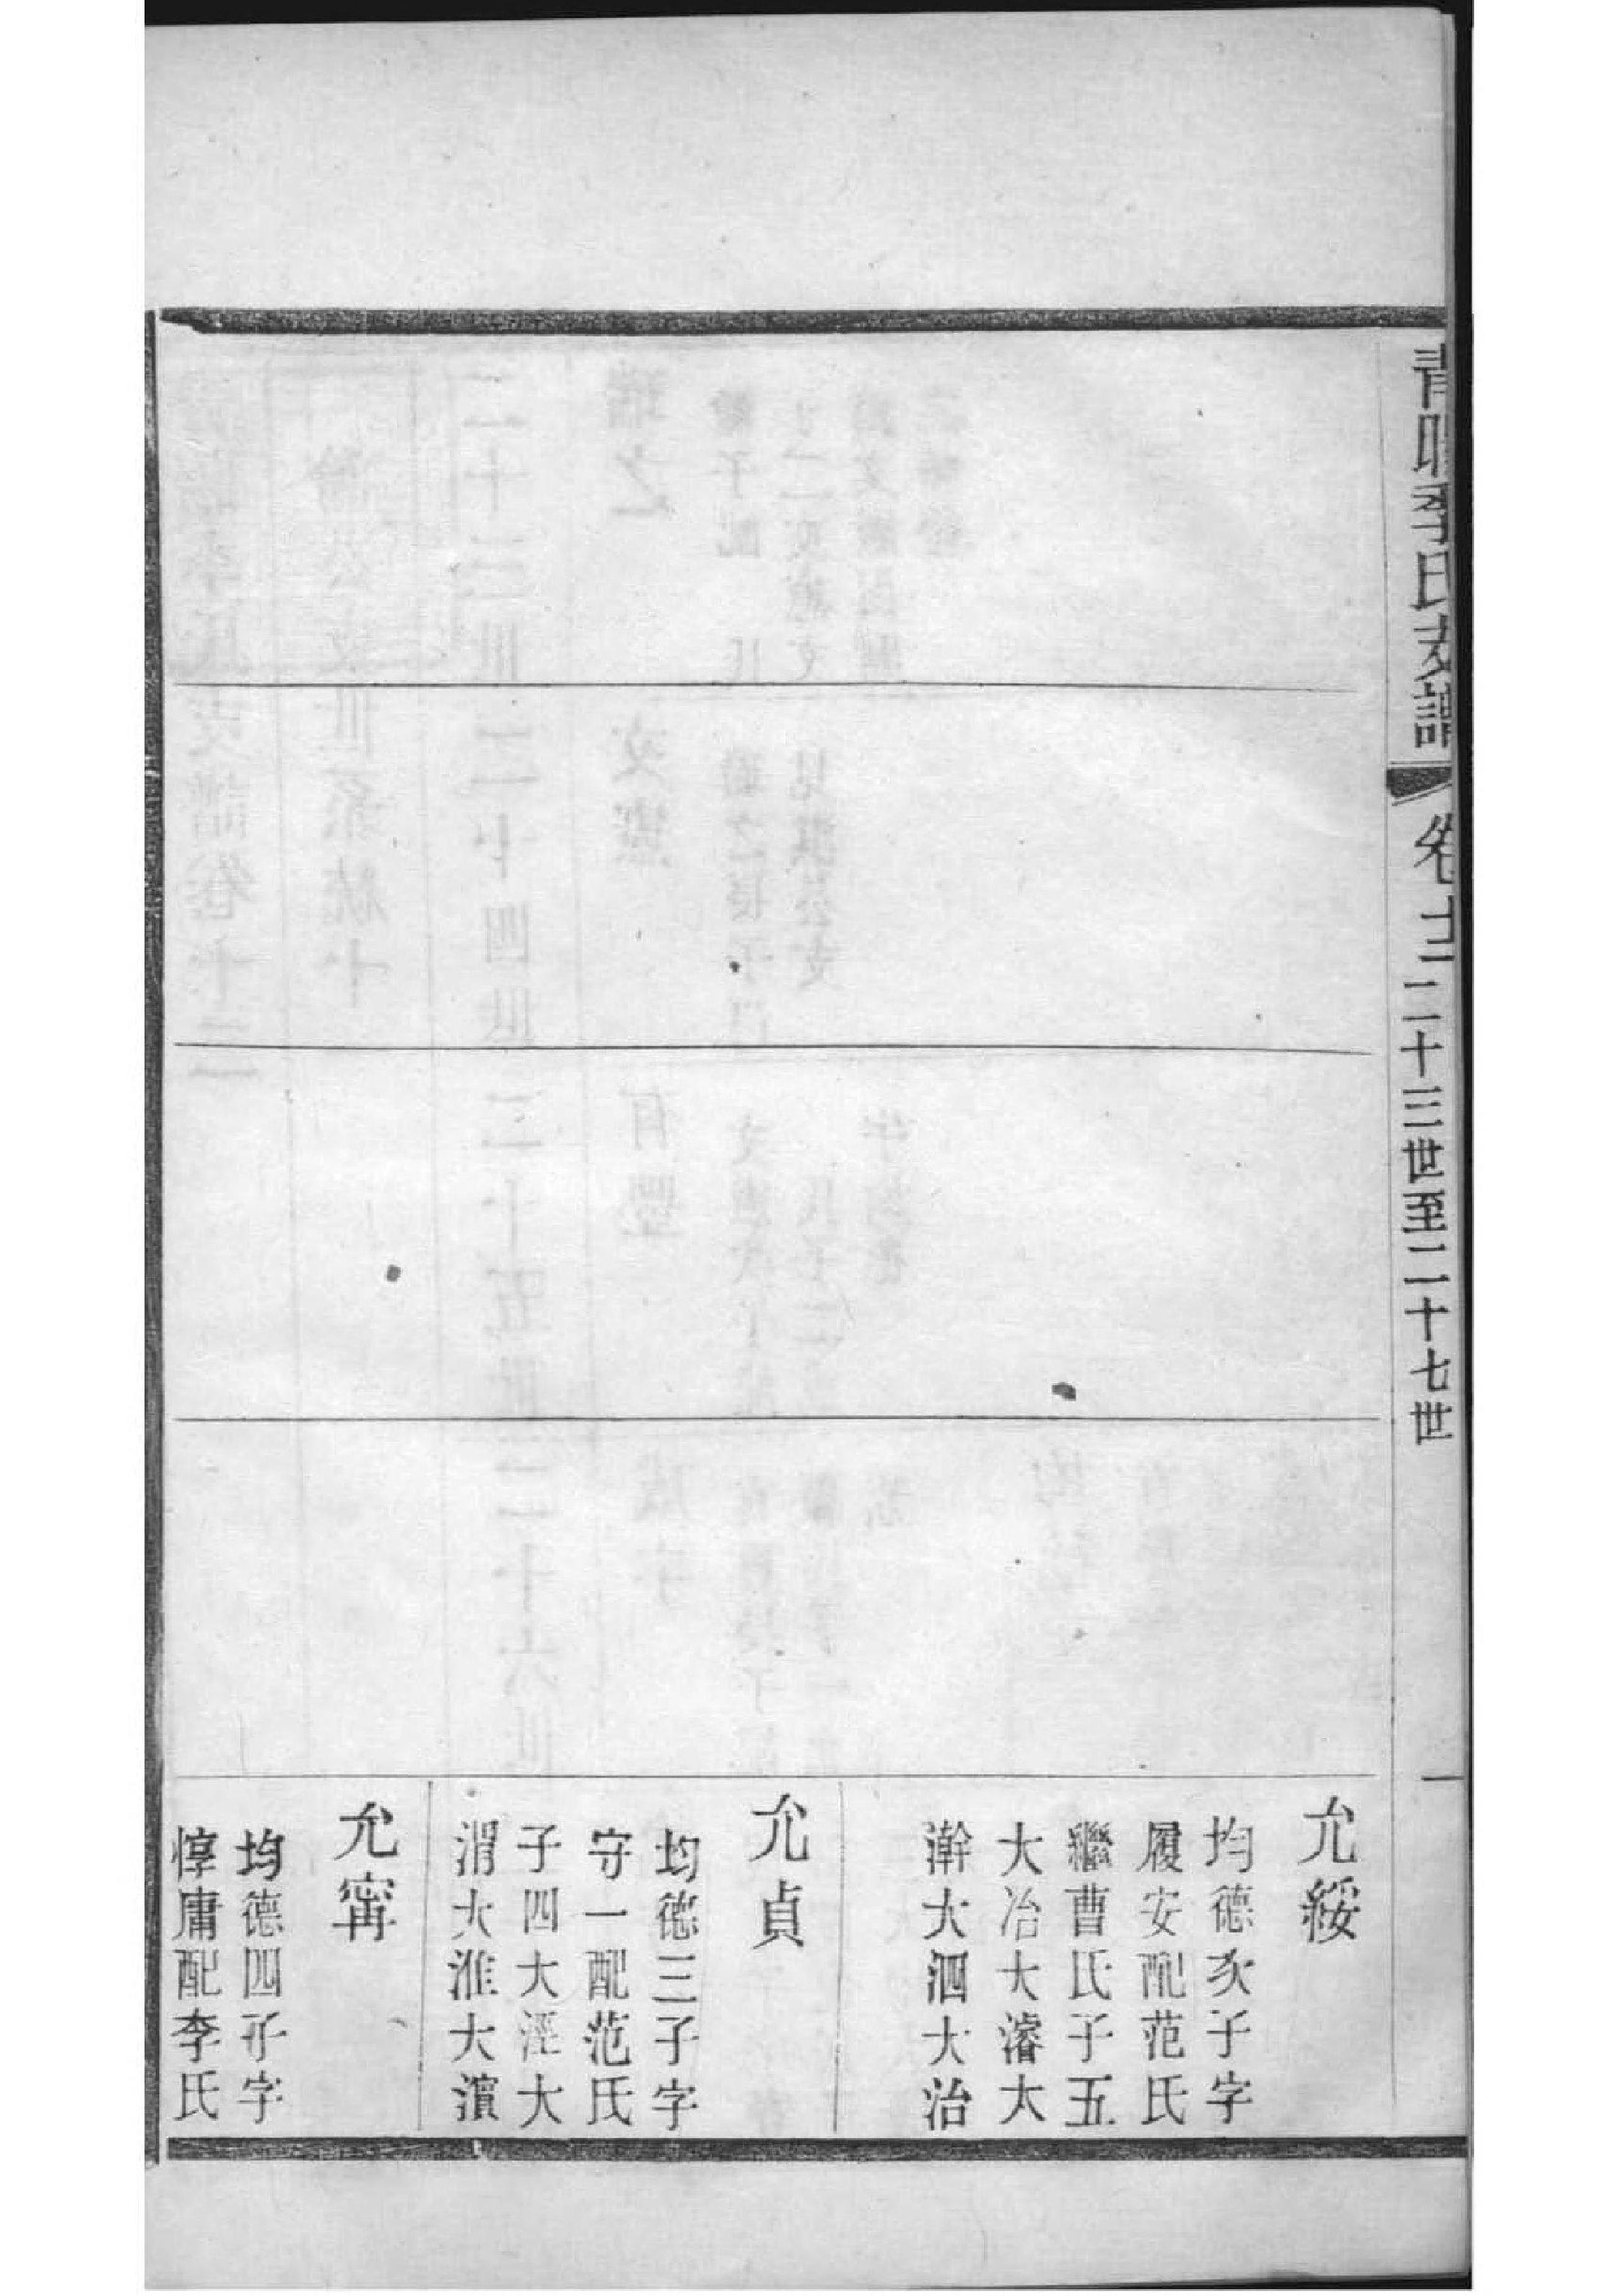 李氏支譜
卷十二
二十三世至二十七世
一
允綏
均德次子字
履安配范氏
繼曹氏子五
大冶大濬大
澣大泗大治
允貞
均德三子字
守一配范氏
子四大涇大
渭大淮大濱
允寗
均德四子字
惇庸配李氏